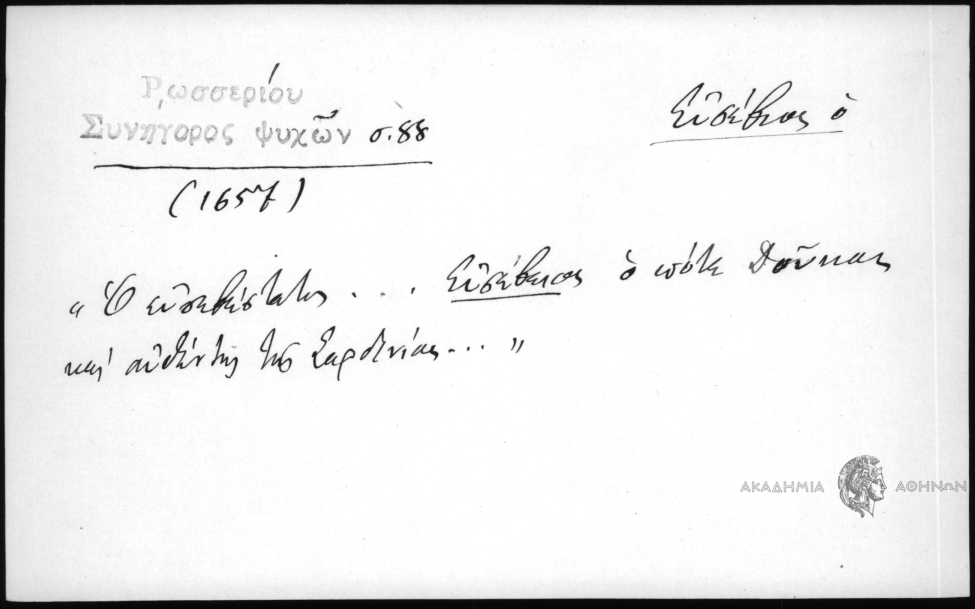 Ρωσσερίου
Συνήγορος ψυχῶν σ. 88
(1657)
Εὐσέβειος ὁ
"Ὁ εὐσεβέστατος . . . Εὐσέβειος ὁ ποτὲ Δοῦκας
καὶ αὐθέντης της Σαρδινίας . . . "
ΑΚΑΔΗΜΙΑ ΑΘΗΝΩΝ